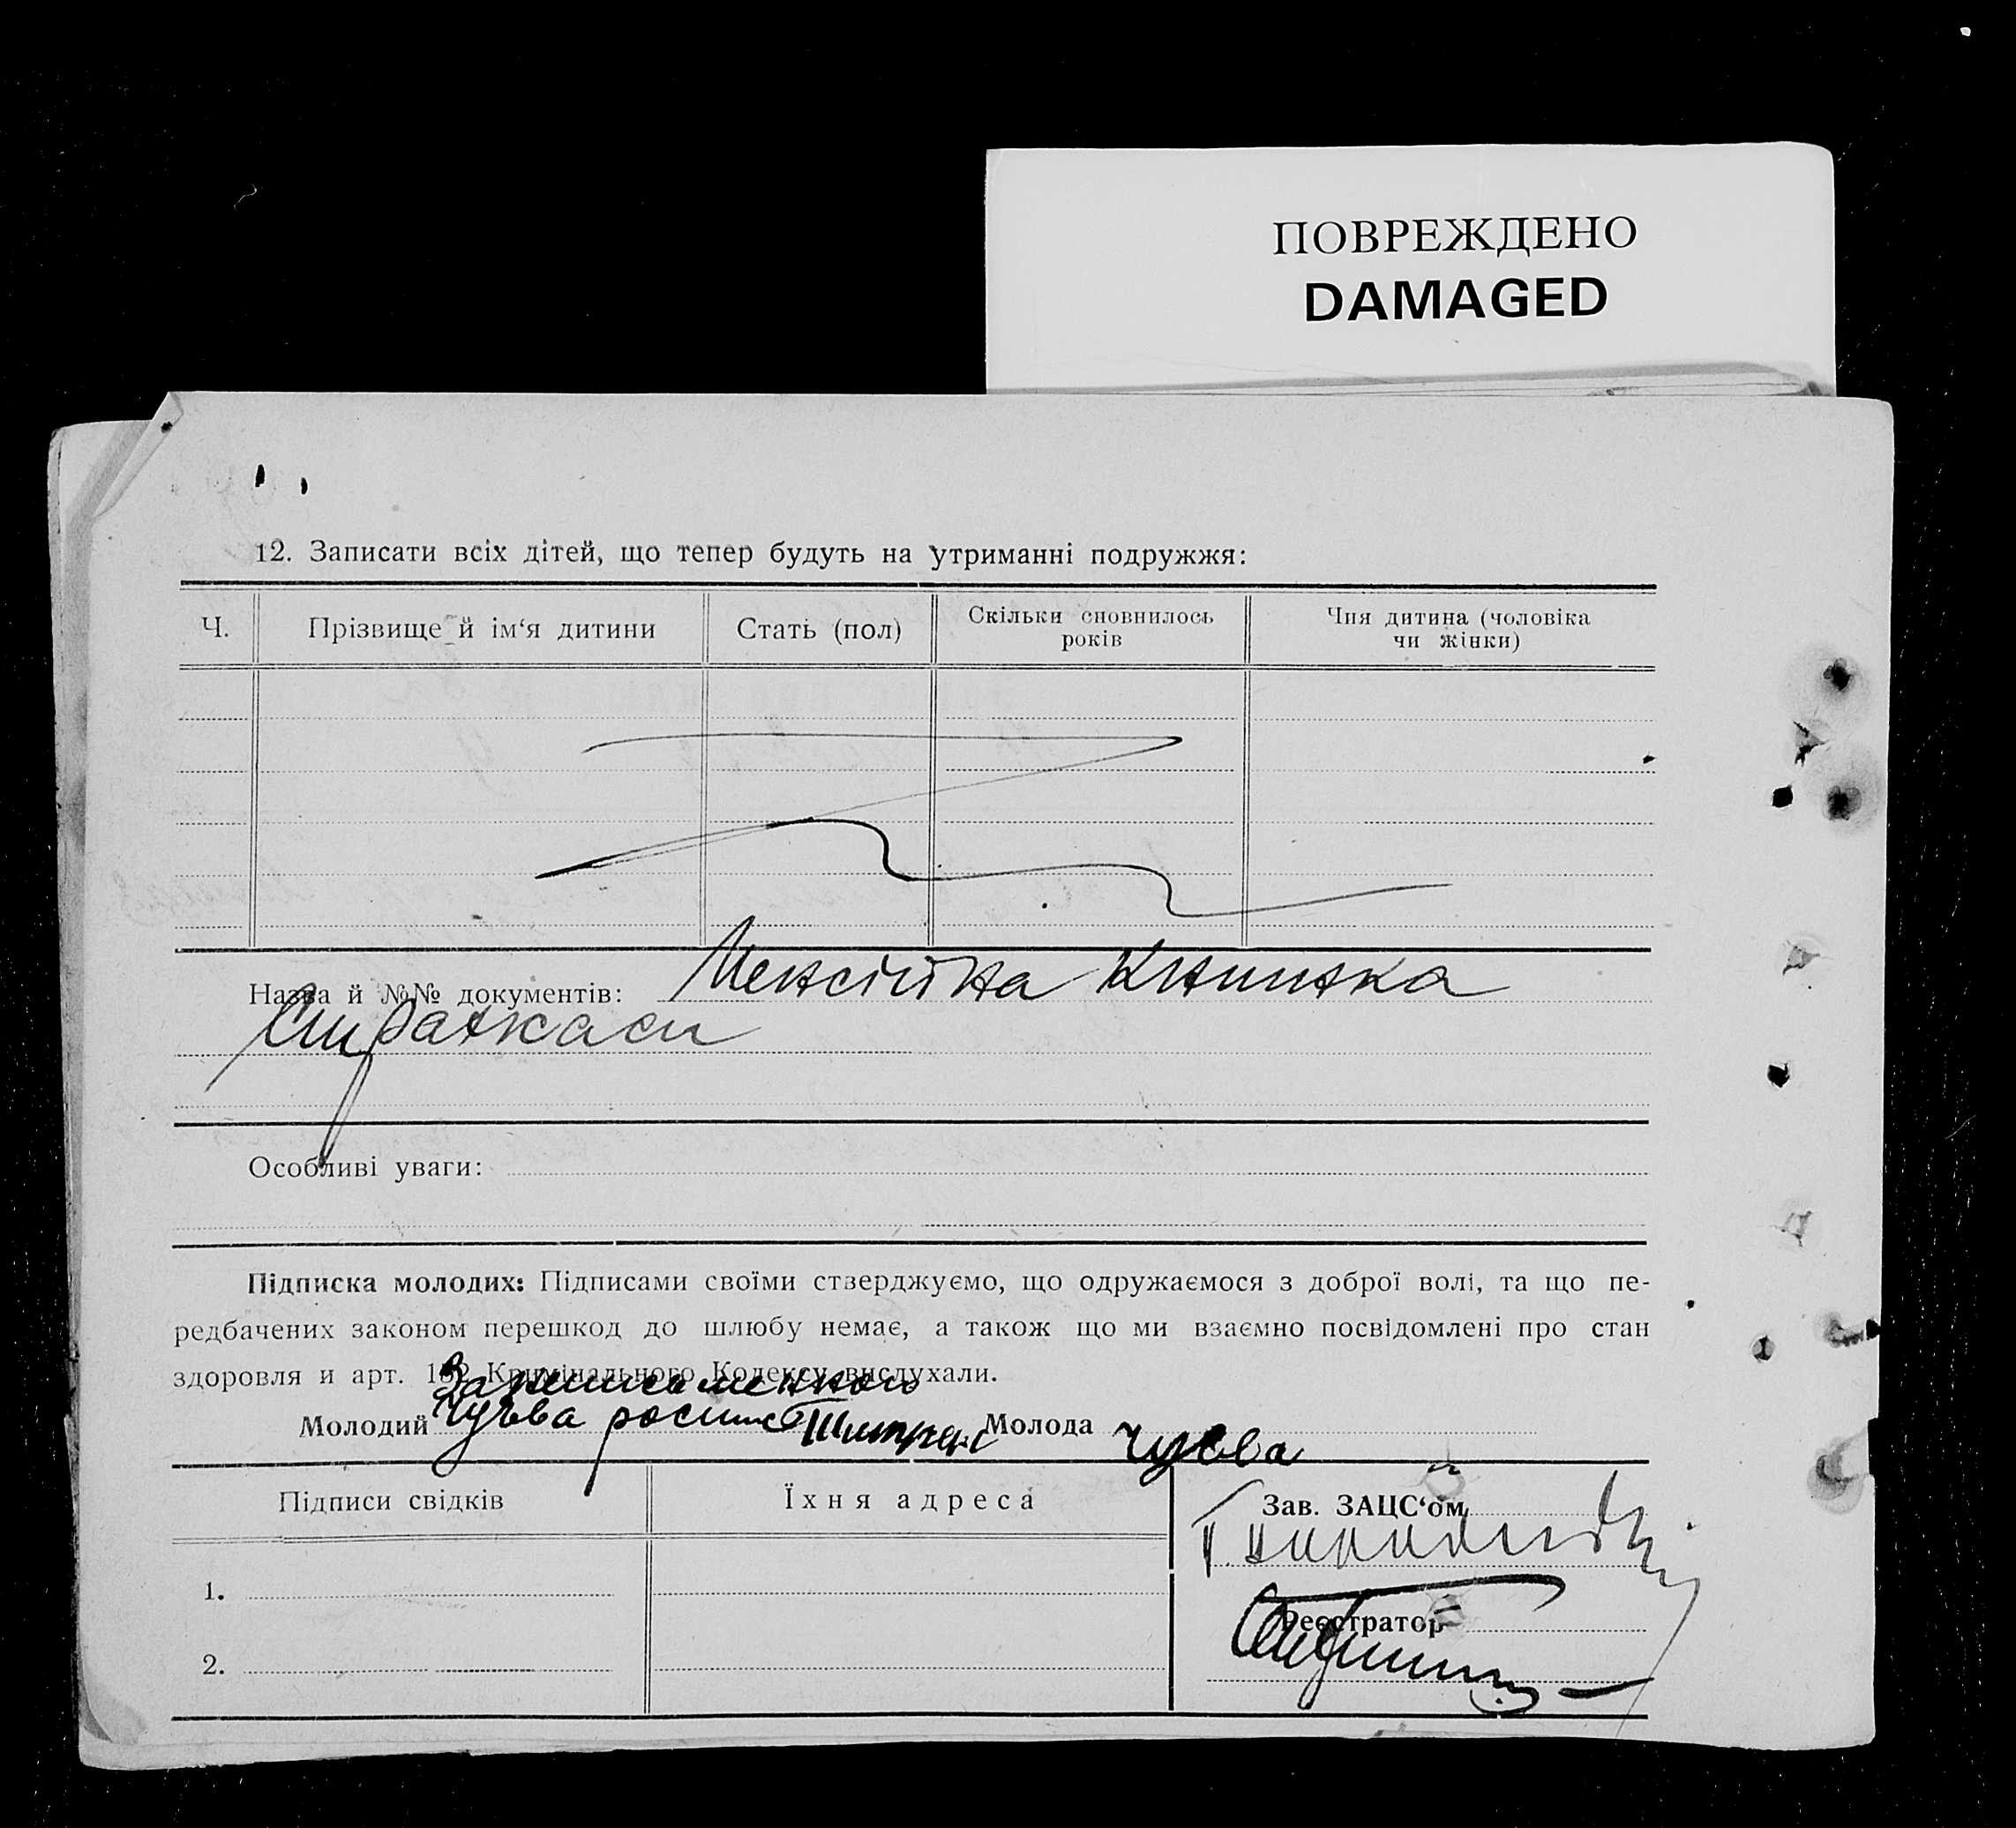 ПОВРЕЖДЕНО
DAMAGED
12. Записати всіх дітей, що тепер будуть на утриманні подружжя:
Ч. Прізвище й ім‘я дитини Стать (пол) Скільки сповнилось років Чия дитина (чоловіка чи жінки)
Назва й №№ документів: Пенсійна Книжка
Особливі уваги:
Підписка молодих: Підписами своїми стверджуємо, що одружаємося з доброї волі, та що пе-
редбачених законом перешкод до шлюбу немає, а також що ми взаємно посвідомлені про стан
здоровля и арт. 152 Кримінального Кодексу вислухали.
Молодий Чуєва Молода Чуєва
Підписи свідків Їхня адреса Зав. ЗАЦС‘ом
1.
Реєстратор
2.